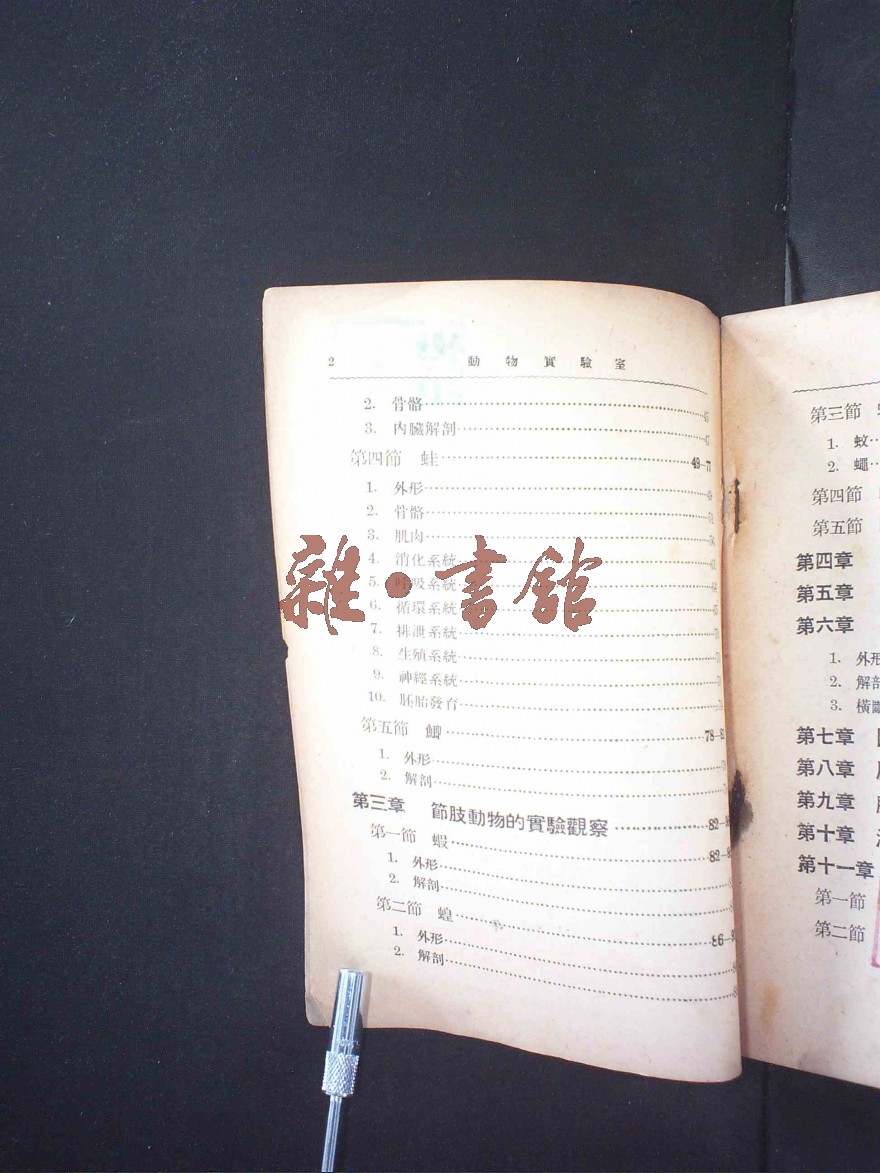 2 動物實驗室
2. 骨骼 47
3. 內臟解剖 47
第四節 蛙 49-77
1. 外形
2. 骨骼
3. 肌肉
4. 消化系統
5. 呼吸系統
6. 循環系統
7. 排泄系統
8. 生殖系統
9. 神經系統
10. 胚胎發育
第五節 鯽 78-81
1. 外形
2. 解剖
第三章 節肢動物的實驗觀察 82-
第一節 蝦 82-
1. 外形
2. 解剖
第二節 蝗 86-
1. 外形
2. 解剖
雜·書館
第三節
1. 蚊
2. 蠅
第四節
第五節
第四章
第五章
第六章
1. 外形
2. 解剖
3. 橫斷
第七章
第八章
第九章
第十章
第十一章
第一節
第二節